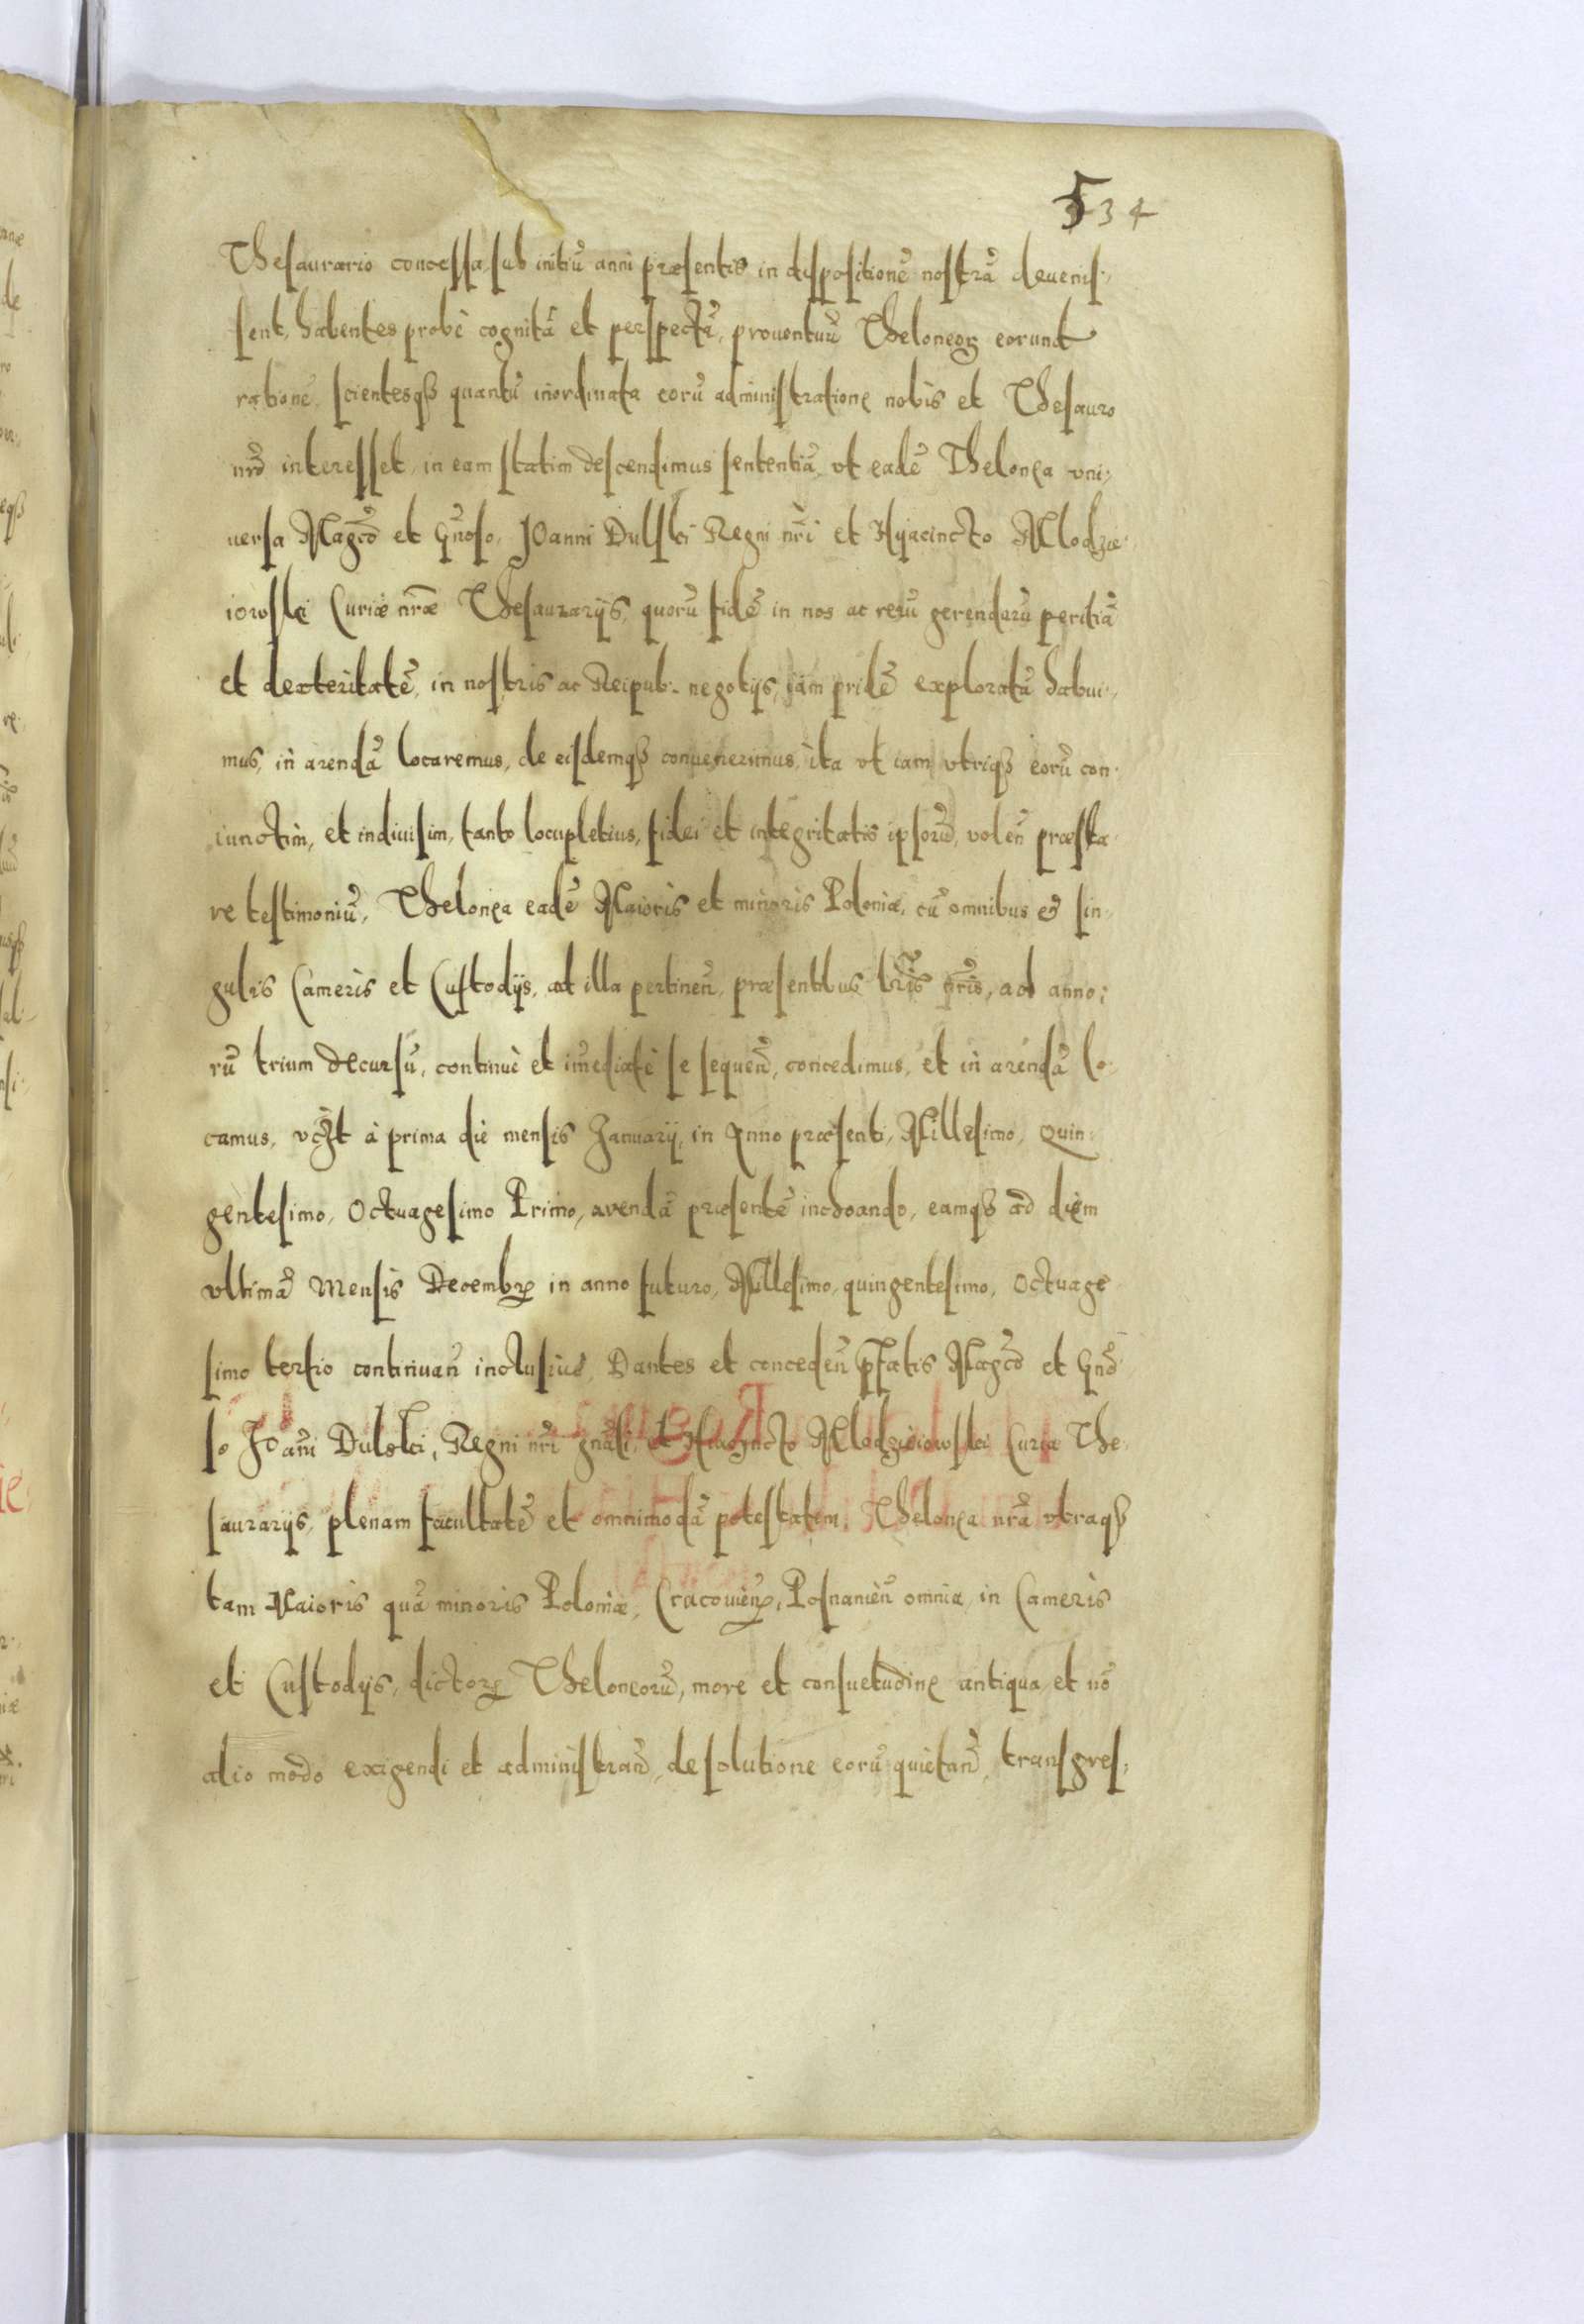 534
Thesaurario concessa, sub initiũ anni præsentis in dispositionẽ nostrã deuenis-
sent, habentes probè cognitã et perspectã, prouentuũ Theloneoꝝ eorund
rationẽ, scientesqꝫ quantũ inordinata eorũ administratione nobis et Thesauro
nrõ interesset, in eam statim descendimus sententiã, vt eadẽ Thelonea vni-
uersa Magcõ et Gñoso, Joanni Dulski Regni nr̃i et Hyacincto Mlodzie-
iowski Curiæ nræ Thesaurarijs, quorũ fidẽ in nos ac rerũ gerendarũ peritiã
et dexteritatẽ, in nostris ac Reipub. negotijs, iam pridẽ exploratã habui-
mus, in arendã locaremus, de eisdemqꝫ conuenerimus, ita vt iam vtriqꝫ eorũ con-
iunctim, et indiuisim, tanto locupletius, fidei et integritatis ipsorũ, voleñ præsta-
re testimoniũ, Thelonea eadẽ Maioris et minoris Poloniæ, cũ omnibus et sin-
gulis Cameris et Custodijs, ad illa pertineñ, præsentibus lr̃is nr̃is, ad anno-
rũ trium decursũ, continuè et im̃ediatè se sequeñ, concedimus, et in arendã lo-
camus, vczt à prima die mensis January, in Anno præsenti, Millesimo, Quin-
gentesimo, Octuagesimo Primo, arendã præsentẽ inchoando, eamqꝫ ad diem
vltimã Mensis Decembꝝ in anno futuro, Millesimo, quingentesimo, Octuage-
simo tertio continuañ inclusiuè, Dantes et concedeñ pfatis Magcõ et Gnõ-
so Joañi Dulski, Regni nr̃i gñali, et Hiacincto Mlodzieiowski Curiæ The-
saurarijs, plenam facultatẽ et omnimodã potestatem, Thelonea nrã vtraqꝫ
tam Maioris quã minoris Poloniæ, Cracouieñ, Posnanieñ omnia, in Cameris
et Custodijs, dictoꝝ Theloneorũ, more et consuetudine antiqua, et nõ
alio modo exigendi et administrañ, de solutione eorũ quietañ, transgres-